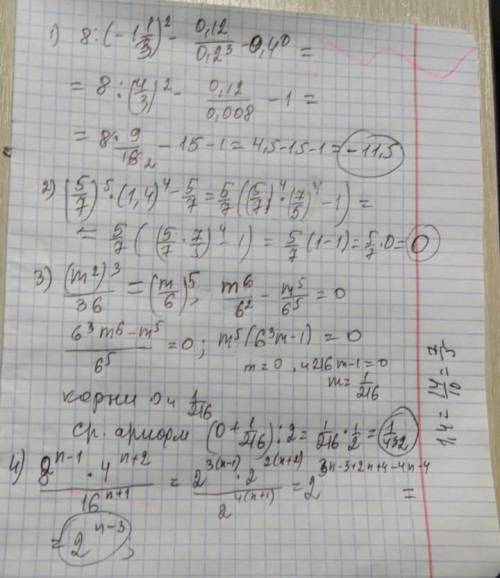 1) 8 : (-1 1/3)² - 0,12/0,2³ - 0,4⁰ =
= 8 : (4/3)² - 0,12/0,008 - 1 =
= 8 · 9/16₂ - 15 - 1 = 4,5 - 15 - 1 = -11,5
2) (5/7)⁵ · (1,4)⁴ - 5/7 = 5/7 ((5/7)⁴ · (7/5)⁴ - 1) =
= 5/7 ((5/7 · 7/5)⁴ - 1) = 5/7 (1-1) = 5/7 · 0 = 0
3) (m²)³/36 = (m/6)⁵; m⁶/6² - m⁵/6⁵ = 0
6³m⁶ - m⁵/6⁵ = 0; m⁵(6³m - 1) = 0
m = 0 · 216m - 1 = 0
m = 1/216
корни 0 и 1/216
ср. арифм (0 + 1/216) : 2 = 1/216 · 1/2 = 1/432
1,4 = 14/10 = 7/5
4) 8ⁿ⁻¹ · 4ⁿ⁺²/16ⁿ⁺¹ = 2³⁽ⁿ⁻¹⁾ · 2²⁽ⁿ⁺²⁾/2⁴⁽ⁿ⁺¹⁾ = 2³ⁿ⁻³⁺²ⁿ⁺⁴⁻⁴ⁿ⁻⁴ =
= 2ⁿ⁻³;